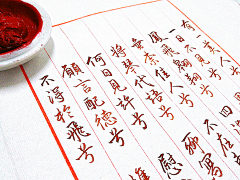 有一美人兮
一日不見兮
鳳飛翱翔兮 四
無奈佳人兮 不在
將琴代語兮 聊寫
何日見許兮 慰
願言配德兮
不得於飛兮